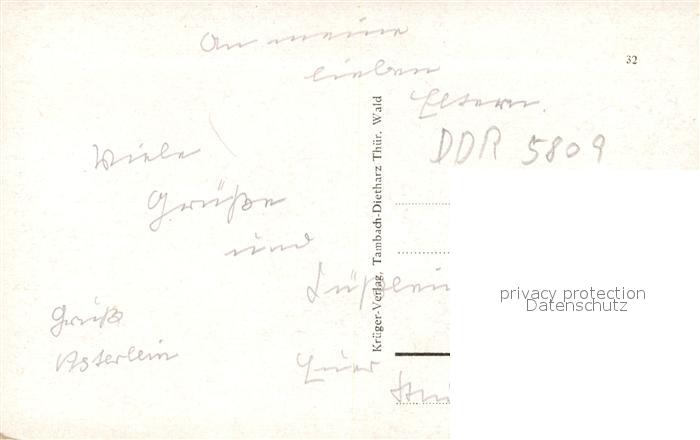 An meine
lieben
Eltern.
32
DDR 5809
Viele
Grüße
und
Gruß
Euer
Krüger-Verlag, Tambach-Dietharz Thür. Wald
privacy protection
Datenschutz